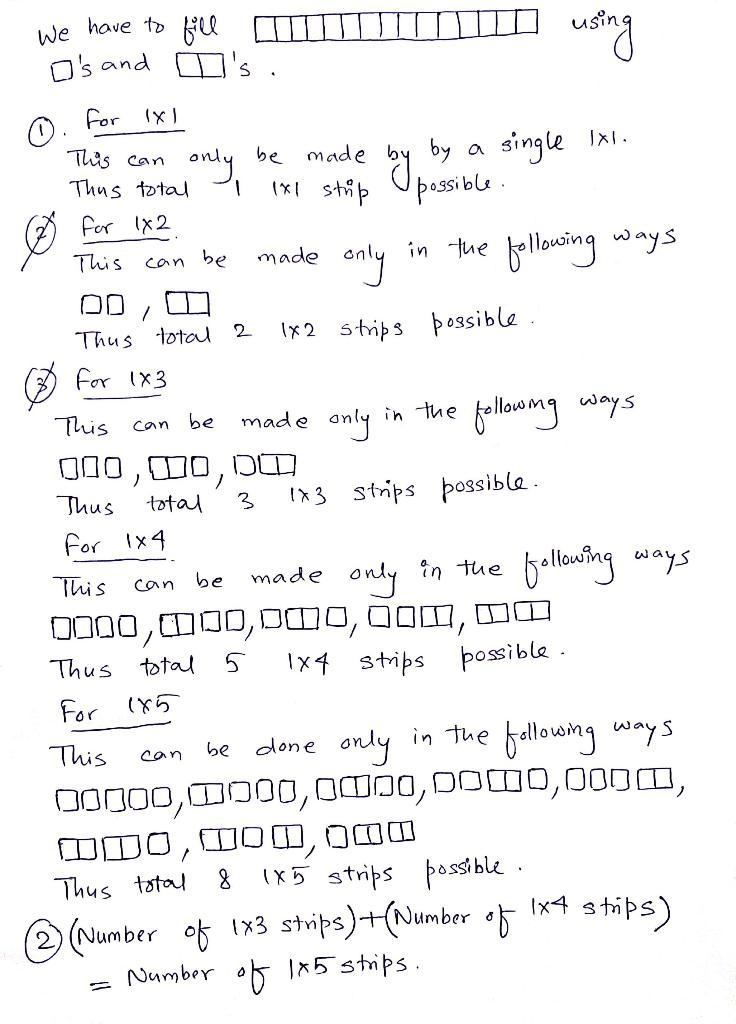 We have to fill using
's and 's.
①. For 1x1
This can only be made by by a single 1x1.
Thus total 1 1x1 strip possible.
② For 1x2.
This can be made only in the following ways
,
Thus total 2 1x2 strips possible.
③ For 1x3
This can be made only in the following ways
, ,
Thus total 3 1x3 strips possible.
For 1x4
This can be made only in the following ways
, , , ,
Thus total 5 1x4 strips possible.
For 1x5
This can be done only in the following ways
, , , , ,
, ,
Thus total 8 1x5 strips possible.
② (Number of 1x3 strips)+(Number of 1x4 strips)
= Number of 1x5 strips.